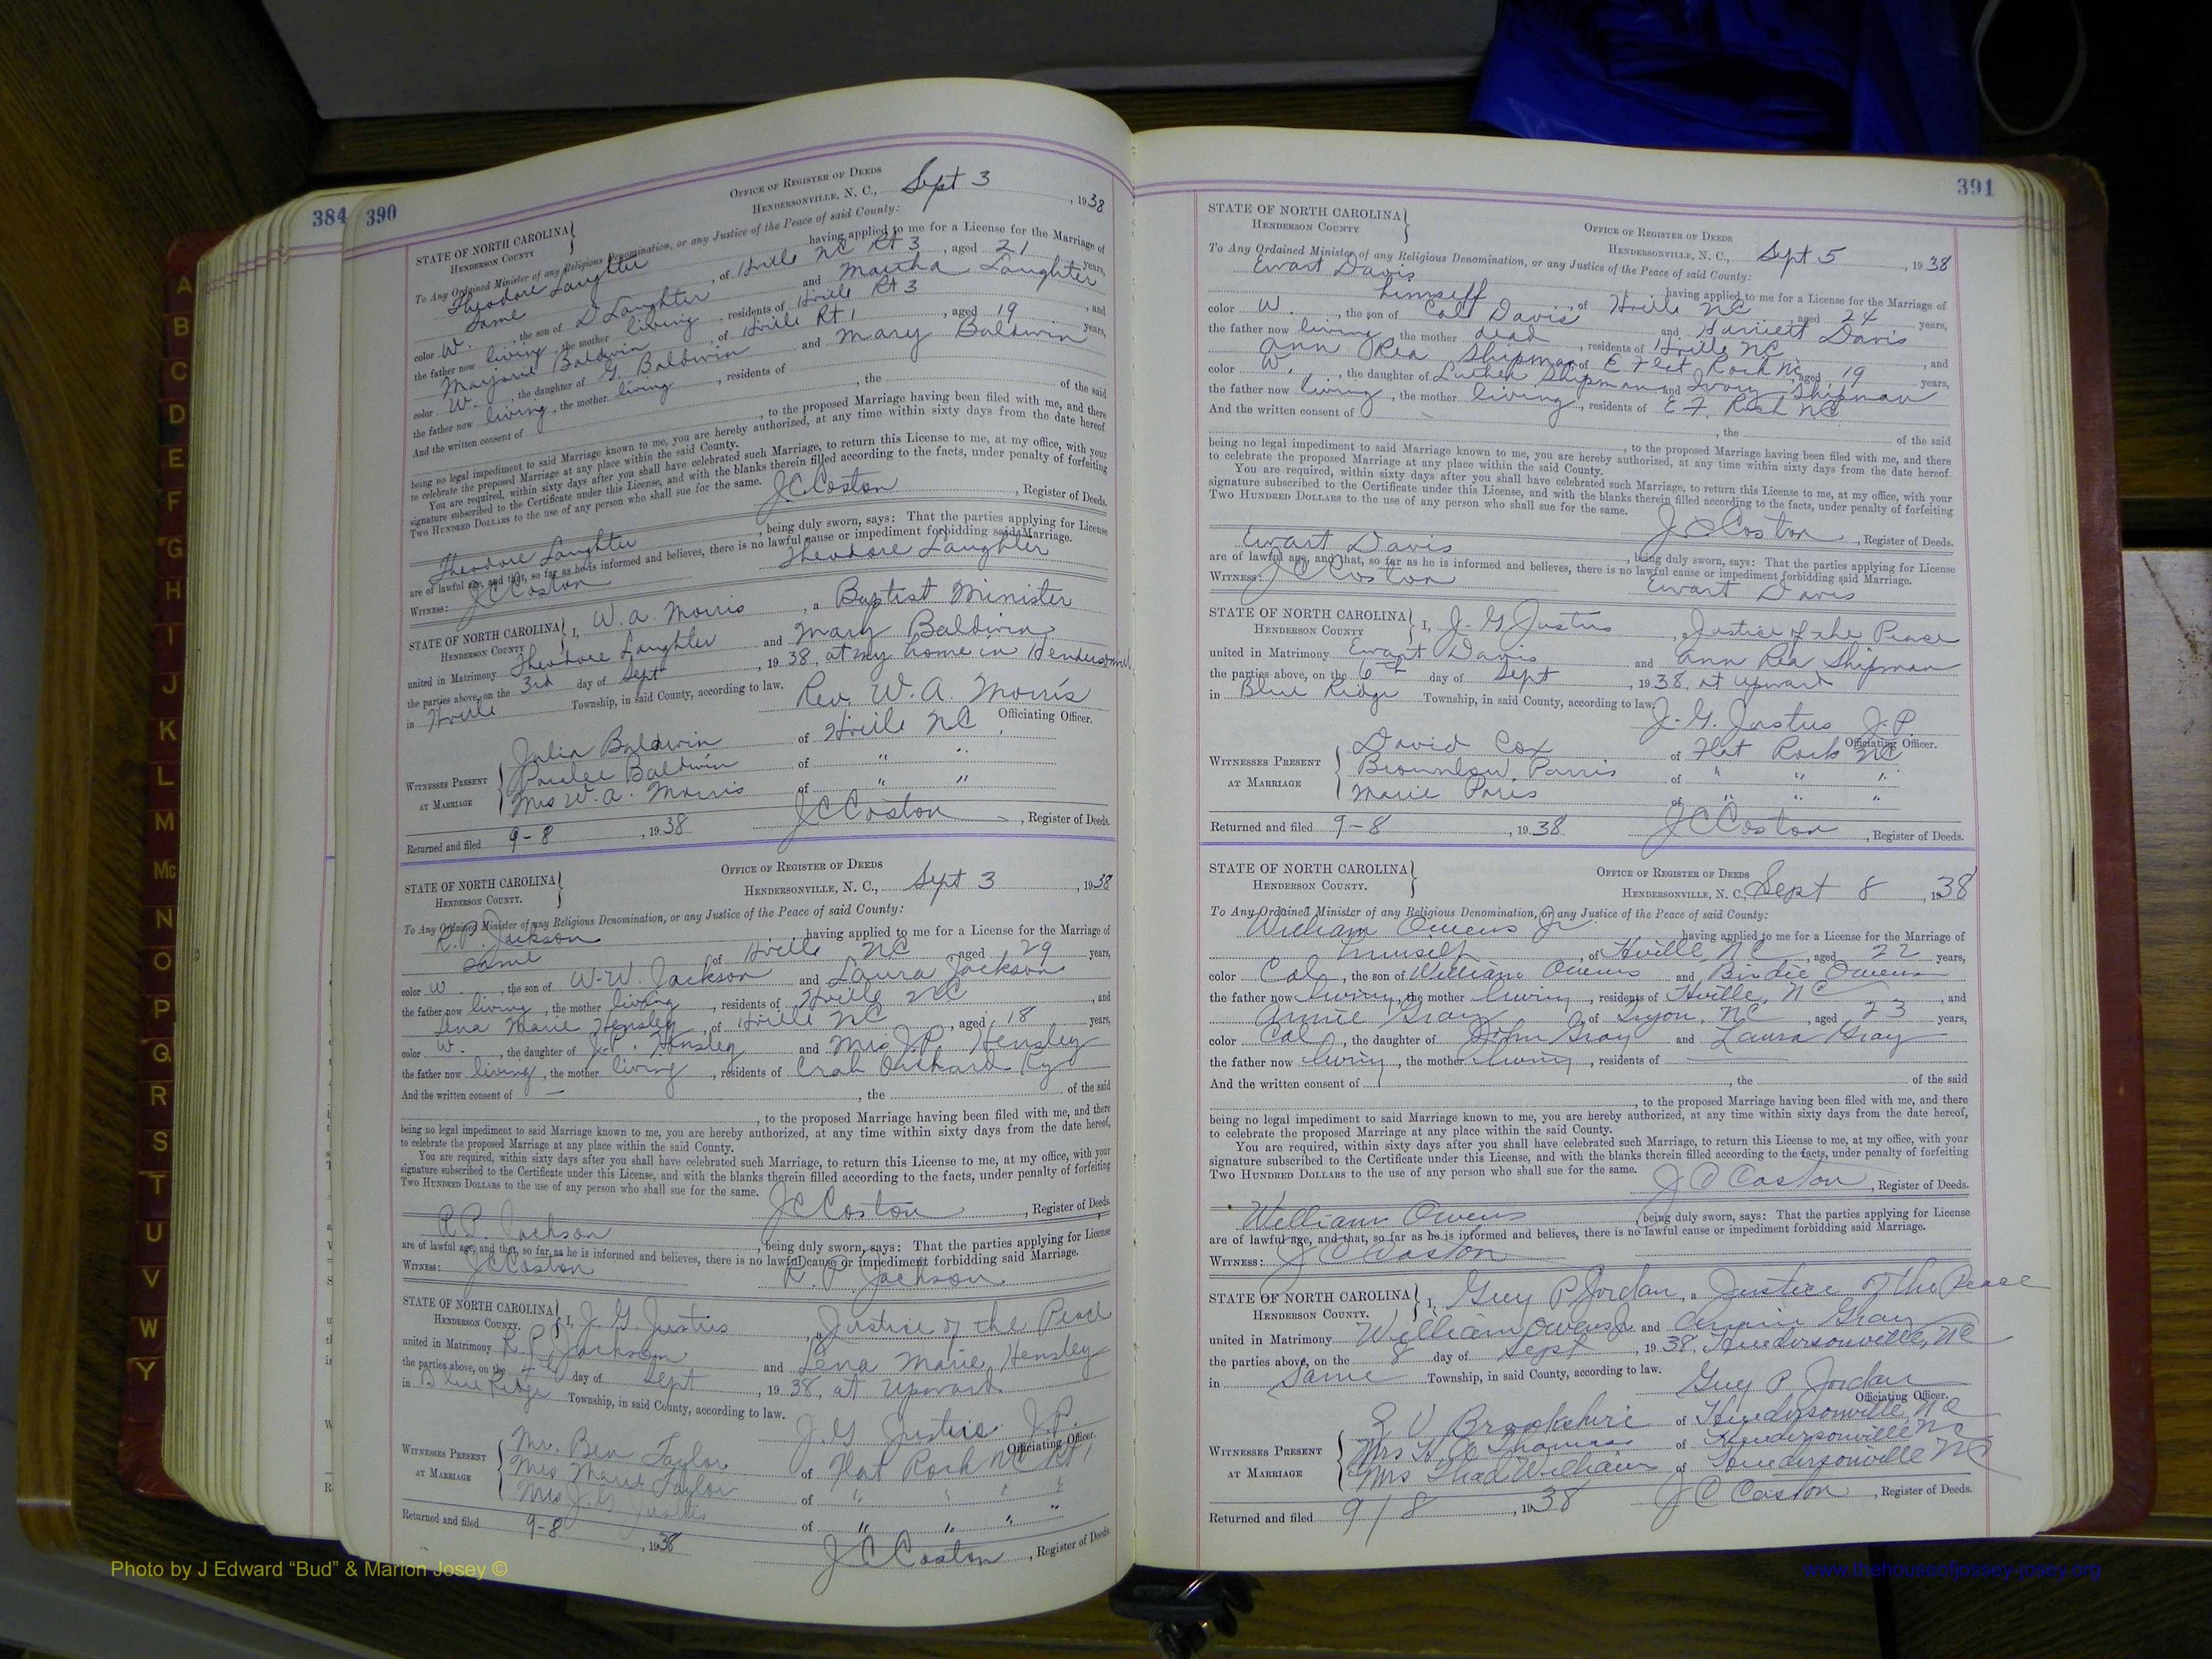 384
390
OFFICE OF REGISTER OF DEEDS
STATE OF NORTH CAROLINA
HENDERSON COUNTY
HENDERSONVILLE, N. C., Sept 3, 1938
To Any Ordained Minister of any Religious Denomination, or any Justice of the Peace of said County:
Theodore Laughter having applied to me for a License for the Marriage of
Same, of Hville NC Rt 3, aged 21 years,
color W., the son of D Laughter and Martha Laughter
the father now living, the mother living, residents of Hville Rt 3, and
Marjorie Baldwin, of Hville Rt 1, aged 19 years,
color W., the daughter of G. Baldwin and Mary Baldwin
the father now living, the mother living, residents of
And the written consent of, the of the said
, to the proposed Marriage having been filed with me, and there
being no legal impediment to said Marriage known to me, you are hereby authorized, at any time within sixty days from the date hereof
to celebrate the proposed Marriage at any place within the said County.
You are required, within sixty days after you shall have celebrated such Marriage, to return this License to me, at my office, with your
signature subscribed to the Certificate under this License, and with the blanks therein filled according to the facts, under penalty of forfeiting
TWO HUNDRED DOLLARS to the use of any person who shall sue for the same.
J C Coston, Register of Deeds.
Theodore Laughter, being duly sworn, says: That the parties applying for License
are of lawful age, and that, so far as he is informed and believes, there is no lawful cause or impediment forbidding said Marriage.
WITNESS: J C Coston Theodore Laughter
STATE OF NORTH CAROLINA
HENDERSON COUNTY
I, W. A. Morris, a Baptist Minister
united in Matrimony Theodore Laughter and Mary Baldwin
the parties above, on the 3rd day of Sept, 1938, at my home in Hendersonville
in Hville Township, in said County, according to law.
Rev. W. A. Morris
Officiating Officer.
WITNESSES PRESENT AT MARRIAGE
Julia Baldwin of Hville NC
Paralee Baldwin of " "
Mrs W. A. Morris of " "
Returned and filed 9-8, 1938 J C Coston, Register of Deeds.
OFFICE OF REGISTER OF DEEDS
STATE OF NORTH CAROLINA
HENDERSON COUNTY.
HENDERSONVILLE, N. C., Sept 3, 1938
To Any Ordained Minister of any Religious Denomination, or any Justice of the Peace of said County:
R. P. Jackson having applied to me for a License for the Marriage of
Same, of Hville NC, aged 29 years,
color W, the son of W. W. Jackson and Laura Jackson
the father now living, the mother living, residents of Hville NC, and
Lena Marie Hensley, of Hville NC, aged 18 years,
color W., the daughter of J. P. Hensley and Mrs J. P. Hensley
the father now living, the mother living, residents of Crab Orchard Ky
And the written consent of —, the of the said
, to the proposed Marriage having been filed with me, and there
being no legal impediment to said Marriage known to me, you are hereby authorized, at any time within sixty days from the date hereof,
to celebrate the proposed Marriage at any place within the said County.
You are required, within sixty days after you shall have celebrated such Marriage, to return this License to me, at my office, with your
signature subscribed to the Certificate under this License, and with the blanks therein filled according to the facts, under penalty of forfeiting
TWO HUNDRED DOLLARS to the use of any person who shall sue for the same.
J C Coston, Register of Deeds.
R. P. Jackson, being duly sworn, says: That the parties applying for License
are of lawful age, and that, so far as he is informed and believes, there is no lawful cause or impediment forbidding said Marriage.
WITNESS: J C Coston R. P. Jackson
STATE OF NORTH CAROLINA
HENDERSON COUNTY.
I, J. G. Justus, a Justice of the Peace
united in Matrimony R. P. Jackson and Lena Marie Hensley
the parties above, on the 4th day of Sept, 1938, at Upward
in Blue Ridge Township, in said County, according to law.
J. G. Justus J. P.
Officiating Officer.
WITNESSES PRESENT AT MARRIAGE
Mr. Ben Taylor of Flat Rock NC Rt 1
Mrs Marie Taylor of " " " "
Mrs J. G. Justus of " " " "
Returned and filed 9-8, 1938 J C Coston, Register of Deeds
391
STATE OF NORTH CAROLINA
HENDERSON COUNTY
OFFICE OF REGISTER OF DEEDS
HENDERSONVILLE, N. C., Sept 5, 1938
To Any Ordained Minister of any Religious Denomination, or any Justice of the Peace of said County:
Ewart Davis having applied to me for a License for the Marriage of
himself, of Hville NC, aged 24 years,
color W., the son of Davis and Harriett Davis
the father now living, the mother dead, residents of Hville NC, and
Ann Rea Shipman of E Flat Rock NC, aged 19 years,
color W., the daughter of Luther Shipman and Ivory Shipman
the father now living, the mother living, residents of E F. Rock NC
And the written consent of
, the of the said
, to the proposed Marriage having been filed with me, and there
being no legal impediment to said Marriage known to me, you are hereby authorized, at any time within sixty days from the date hereof
to celebrate the proposed Marriage at any place within the said County.
You are required, within sixty days after you shall have celebrated such Marriage, to return this License to me, at my office, with your
signature subscribed to the Certificate under this License, and with the blanks therein filled according to the facts, under penalty of forfeiting
TWO HUNDRED DOLLARS to the use of any person who shall sue for the same.
J C Coston, Register of Deeds.
Ewart Davis, being duly sworn, says: That the parties applying for License
are of lawful age, and that, so far as he is informed and believes, there is no lawful cause or impediment forbidding said Marriage.
WITNESS: J C Coston Ewart Davis
STATE OF NORTH CAROLINA
HENDERSON COUNTY
I, J. G Justus, Justice of the Peace
united in Matrimony Ewart Davis and Ann Rea Shipman
the parties above, on the 6th day of Sept, 1938, at Upward
in Blue Ridge Township, in said County, according to law.
J. G. Justus J. P.
Officiating Officer.
WITNESSES PRESENT AT MARRIAGE
David Cox of Flat Rock NC
Brownlow Parris of " " "
Marie Paris of " " "
Returned and filed 9-8, 1938. J C Coston, Register of Deeds.
STATE OF NORTH CAROLINA
HENDERSON COUNTY.
OFFICE OF REGISTER OF DEEDS
HENDERSONVILLE, N. C., Sept 8, 1938
To Any Ordained Minister of any Religious Denomination, or any Justice of the Peace of said County:
William Owens Jr having applied to me for a License for the Marriage of
himself, of Hville, NC, aged 22 years,
color Col, the son of William Owens and Birdie Owens
the father now living, the mother living, residents of Hville, NC, and
Annie Gray of Tryon, NC, aged 23 years,
color Col, the daughter of John Gray and Laura Gray
the father now living, the mother living, residents of —
And the written consent of, the of the said
, to the proposed Marriage having been filed with me, and there
being no legal impediment to said Marriage known to me, you are hereby authorized, at any time within sixty days from the date hereof,
to celebrate the proposed Marriage at any place within the said County.
You are required, within sixty days after you shall have celebrated such Marriage, to return this License to me, at my office, with your
signature subscribed to the Certificate under this License, and with the blanks therein filled according to the facts, under penalty of forfeiting
TWO HUNDRED DOLLARS to the use of any person who shall sue for the same.
J C Coston, Register of Deeds.
William Owens, being duly sworn, says: That the parties applying for License
are of lawful age, and that, so far as he is informed and believes, there is no lawful cause or impediment forbidding said Marriage.
WITNESS: J C Coston
STATE OF NORTH CAROLINA
HENDERSON COUNTY.
I, Guy P Jordan, a Justice of the Peace
united in Matrimony William Owens Jr and Annie Gray
the parties above, on the 8 day of Sept, 1938, Hendersonville, NC
in Same Township, in said County, according to law.
Guy P. Jordan
Officiating Officer.
WITNESSES PRESENT AT MARRIAGE
Brookshire of Hendersonville, NC
Mrs Thomas of Hendersonville NC
Mrs Thad Williams of Hendersonville NC
Returned and filed 9/8, 1938 J C Coston, Register of Deeds.
A
B
C
D
E
F
G
H
I
J
K
L
M
Mc
N
O
P
Q
R
S
T
U
V
W
Y
Photo by J Edward “Bud” & Marion Josey ©
www.thehouseofjossey-josey.org